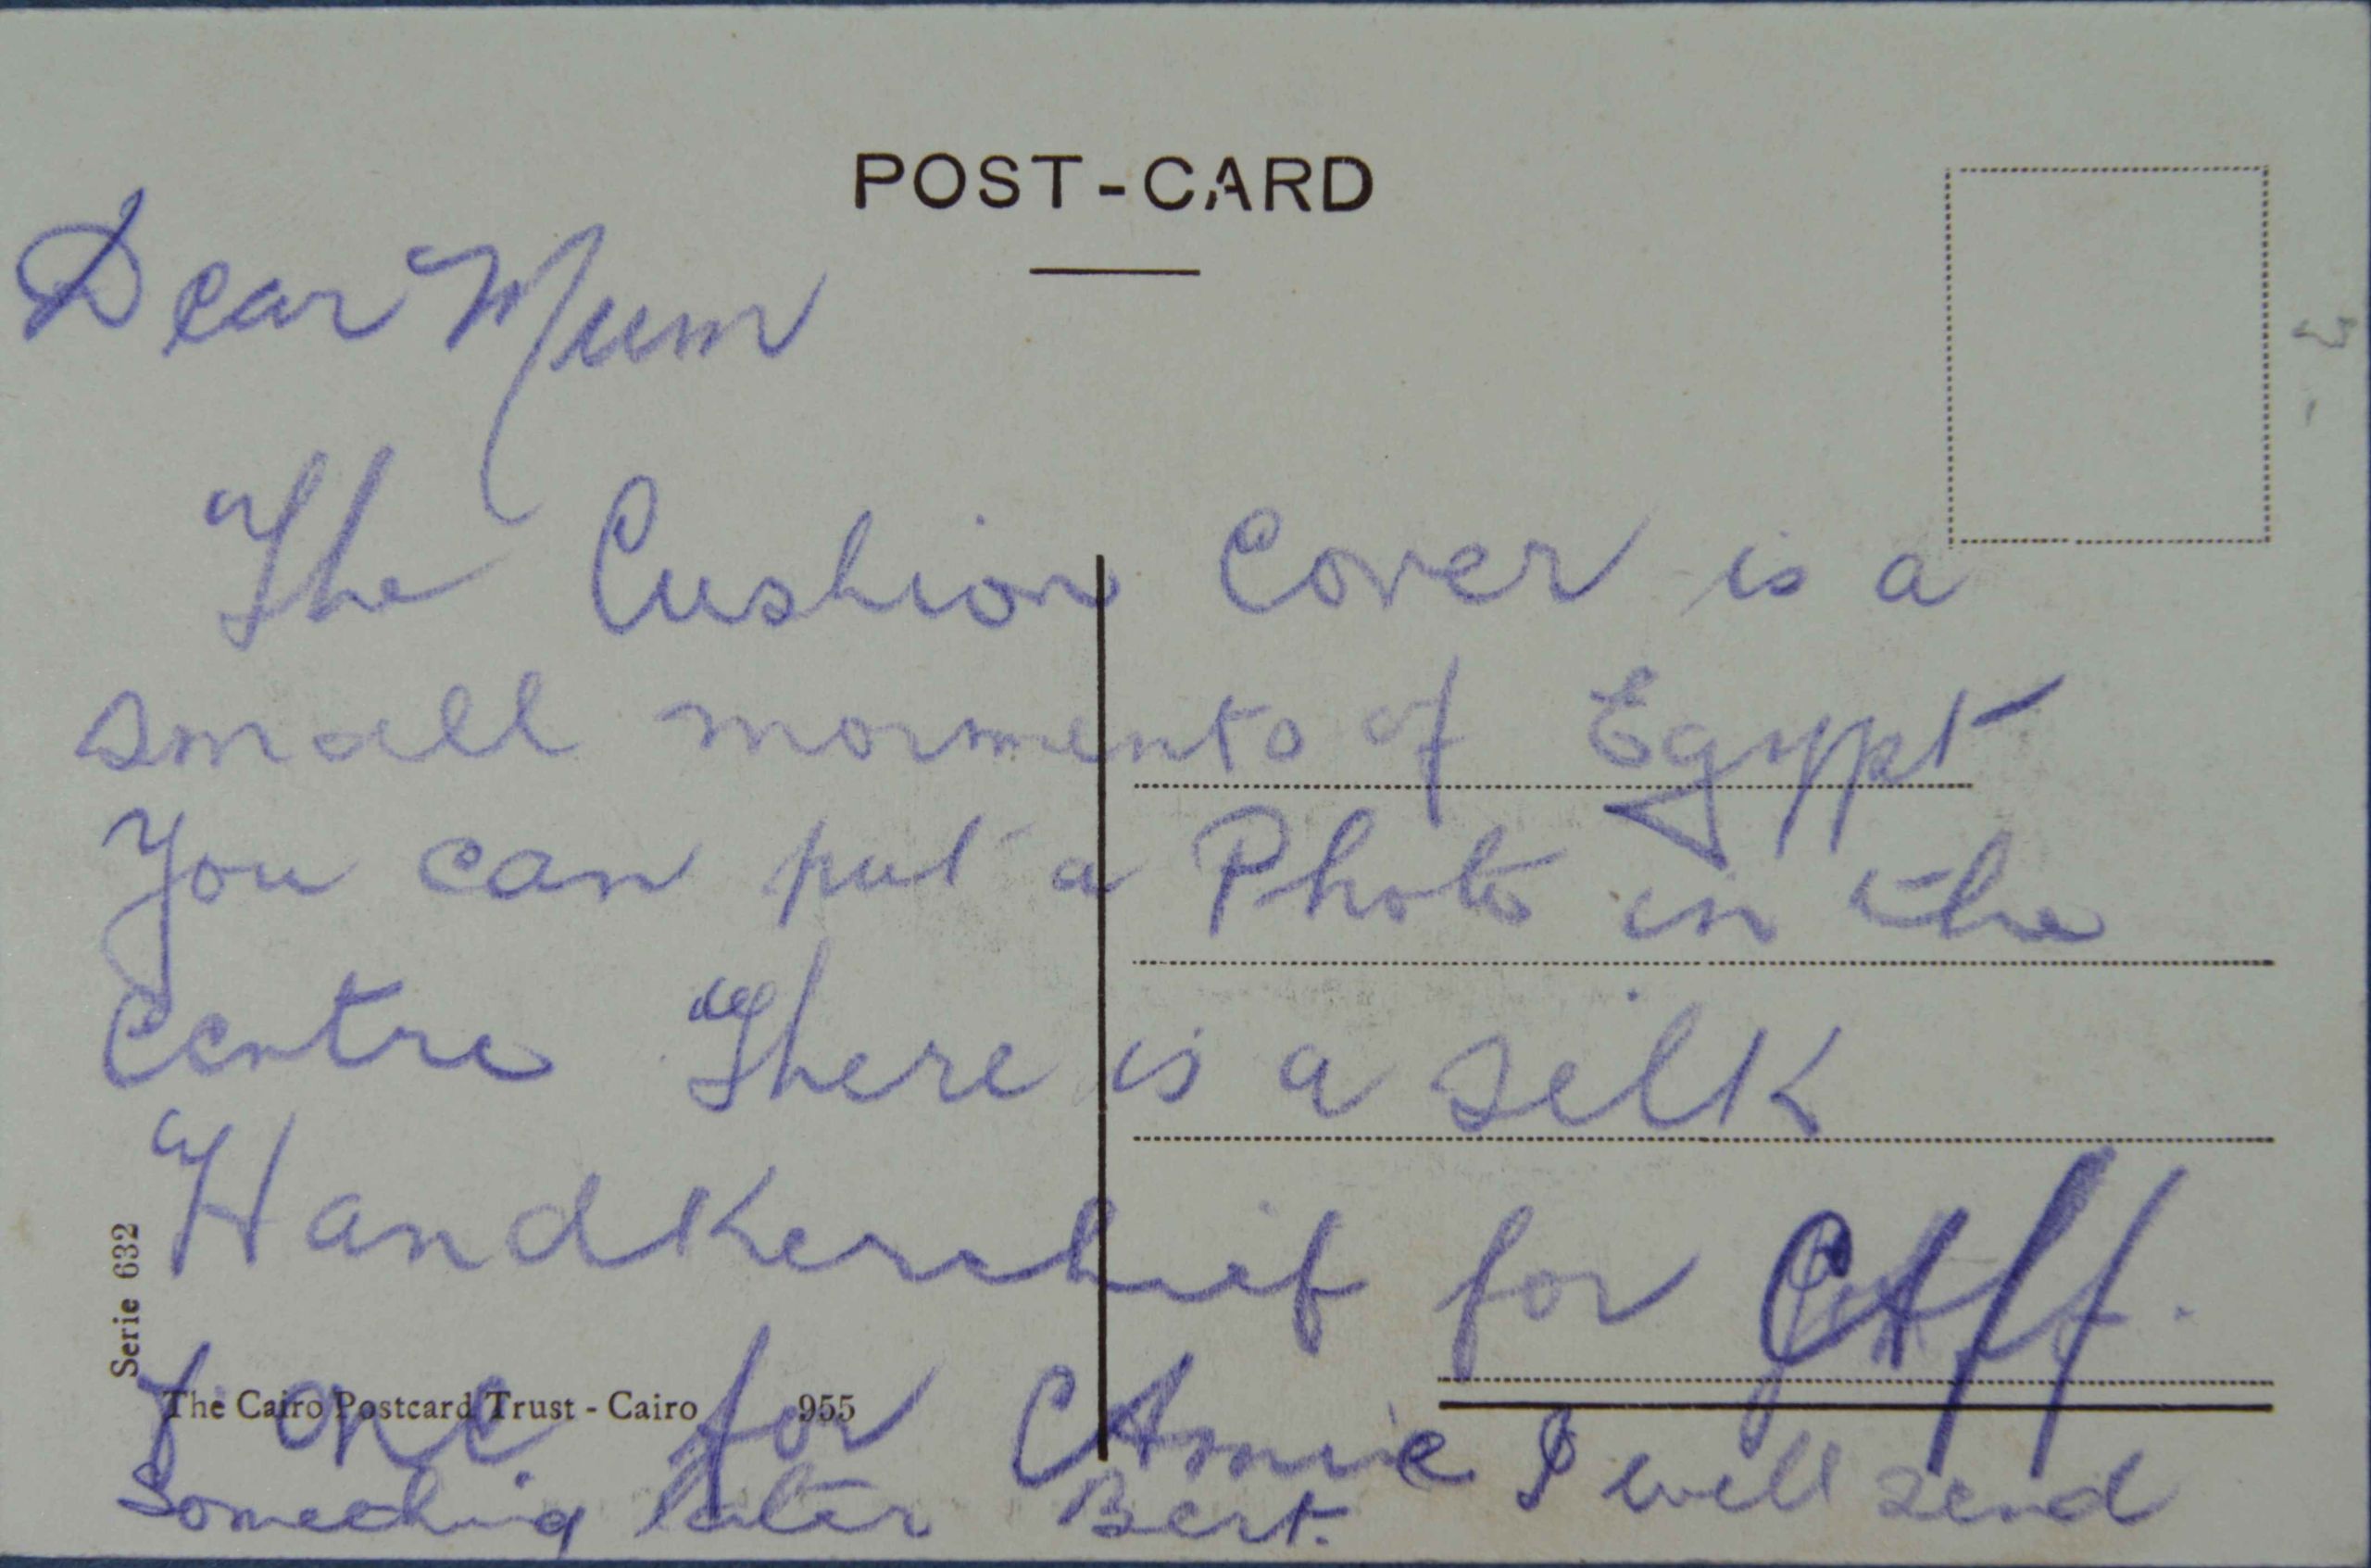 POST-CARD
Dear Mum
The Cushion Cover is a
small mormento of Egypt
You can put a Photo in the
Centre There is a silk
Handkerchief for Aff.
& one for Amie I will send
Something later Bert.
Serie 632
The Cairo Postcard Trust - Cairo 955